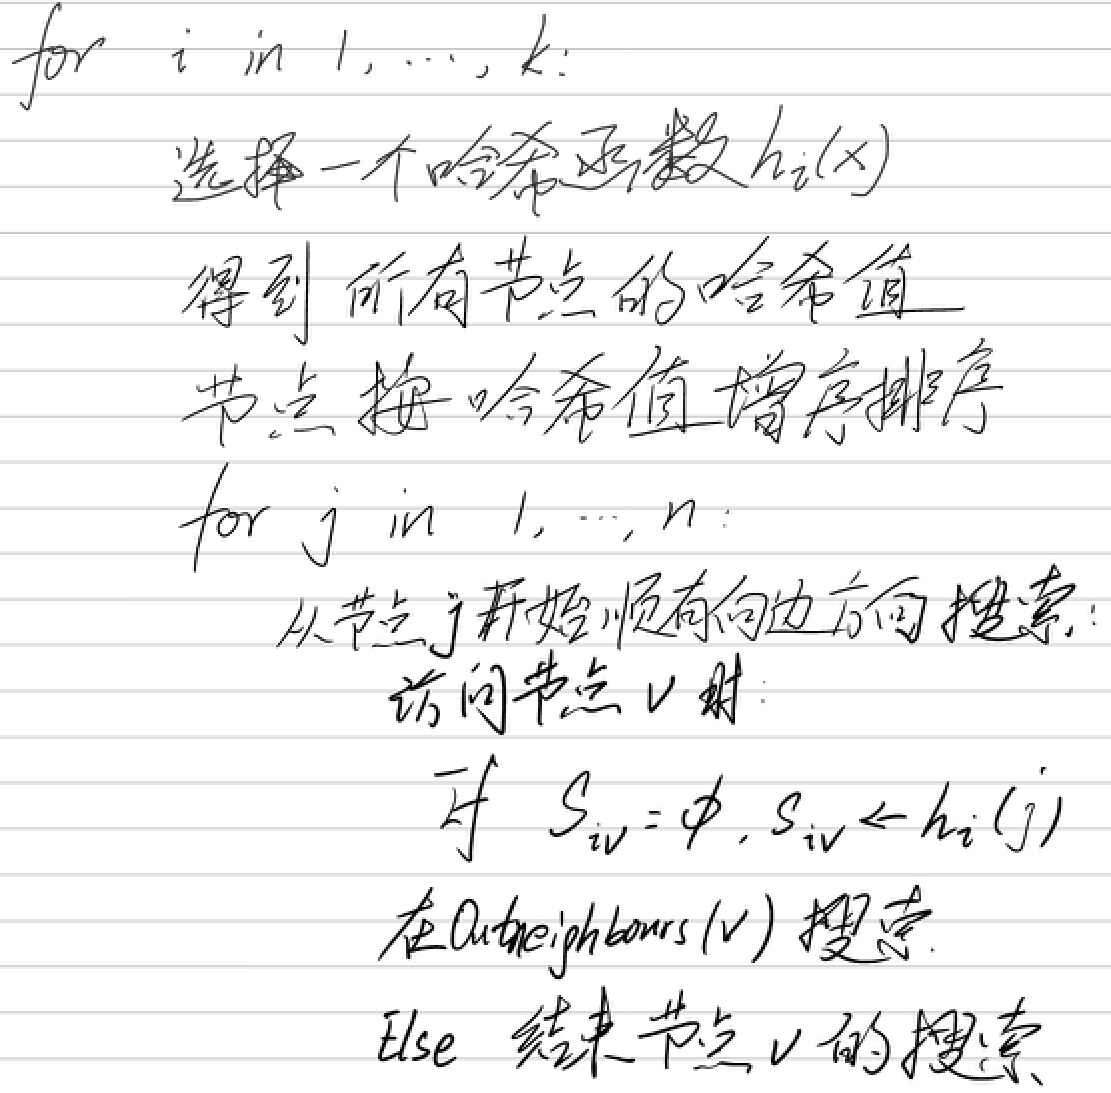 for i in 1, ..., k:
选择一个哈希函数 hᵢ(x)
得到所有节点的哈希值
节点按哈希值增序排序
for j in 1, ..., n:
从节点j开始顺有向边方向搜索:
访问节点 v 时:
If Sᵢᵥ = ϕ, Sᵢᵥ ← hᵢ(j)
在Outneighbours(v) 搜索.
Else 结束节点 v 的搜索